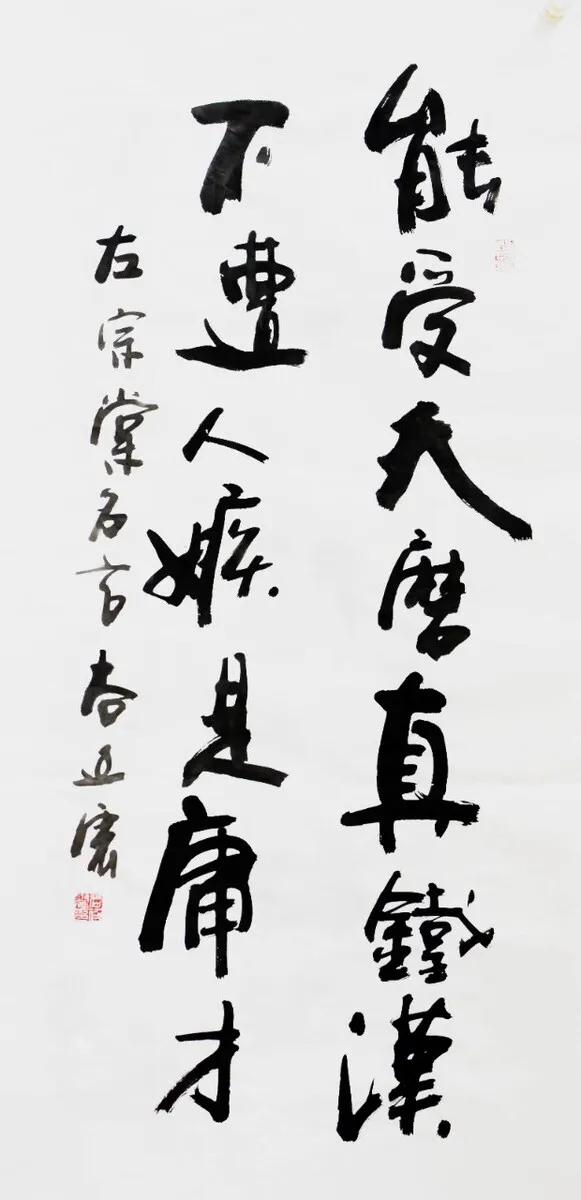 能受天磨真鐵漢
不遭人嫉是庸才
左宗棠名言